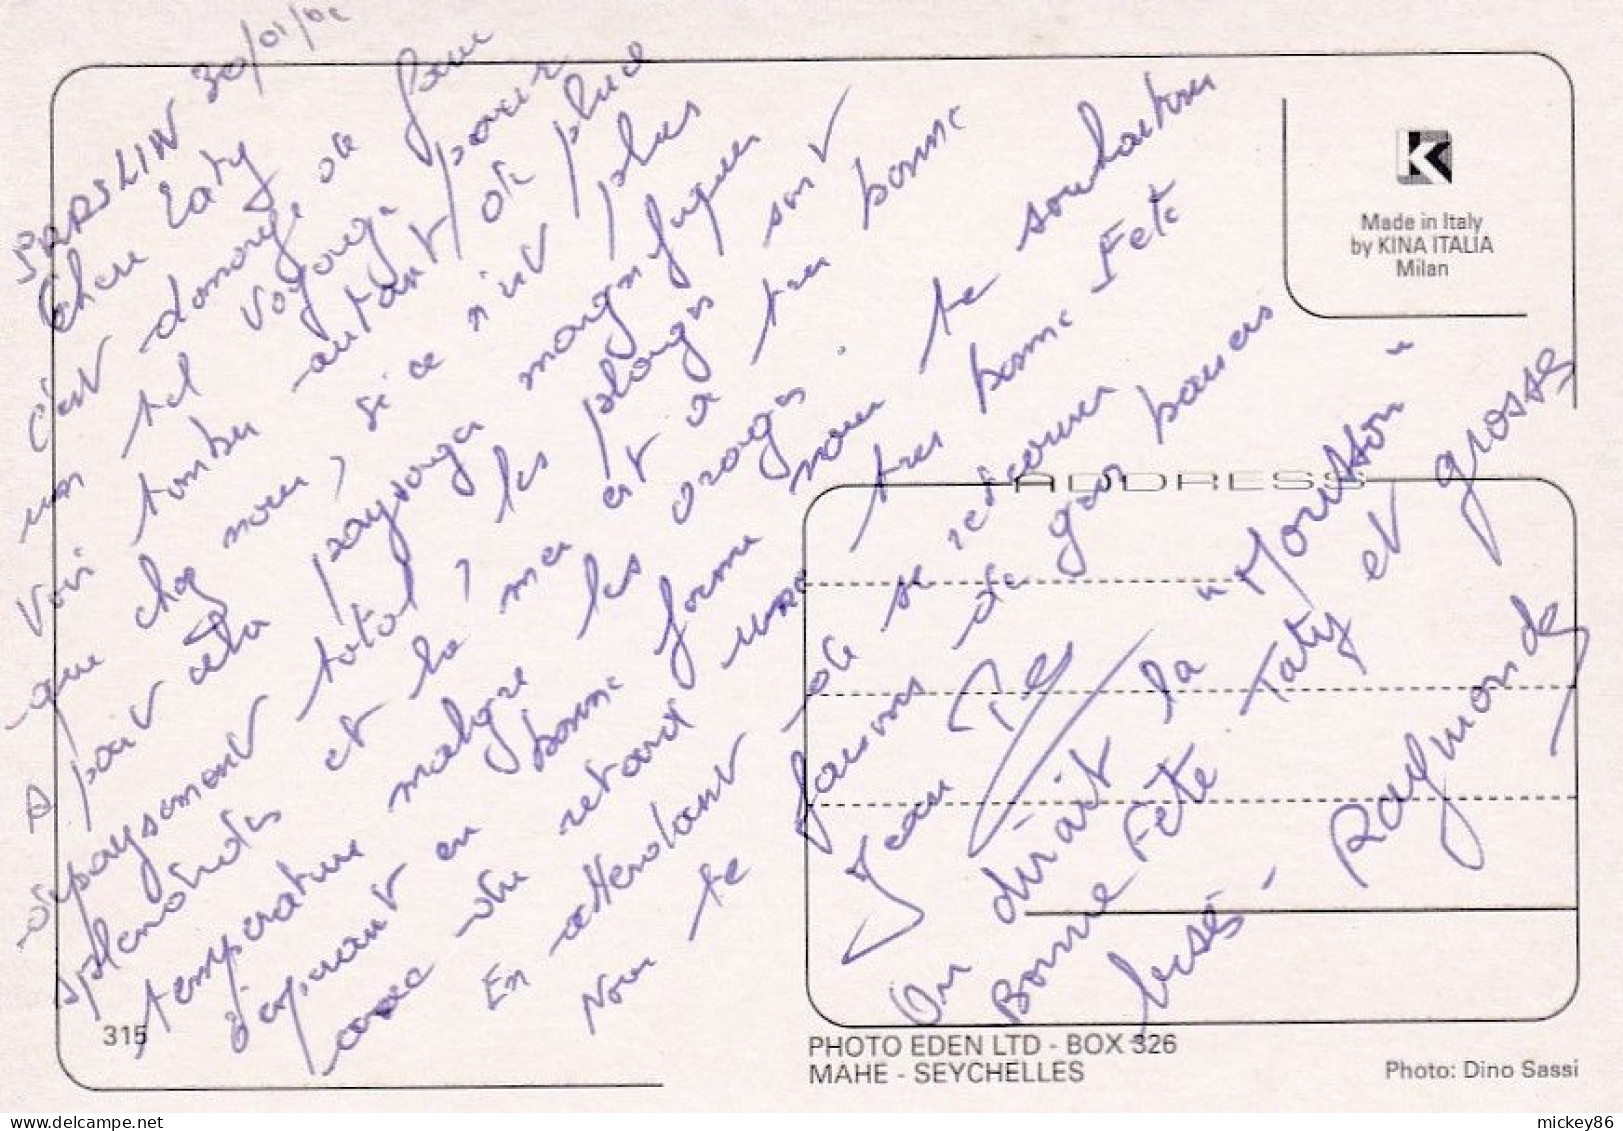 PRASLIN 30/01/02
Chere Taty
C'est domage de faire
un tel voyage pour
voir tomber autant de pluie
que chez nous, si ce n'est plus
A part cela paysages magnifiques
depaysement total, les plonges sont
splendides et la mer est a tres bonne
temperature malgre les orages.
J'espérant en bonne forme nous te souhaitons
avec du retard une tres bonne Fete
En attendant de se retrouver
Nous te faisons de gros baisers
Jean
On dirait la "Mousson"
Bonne Fête Taty et grosses
bises - Raymonde
Made in Italy
by KINA ITALIA
Milan
ADDRESS
315
PHOTO EDEN LTD - BOX 326
MAHE - SEYCHELLES
Photo: Dino Sassi
mickey86